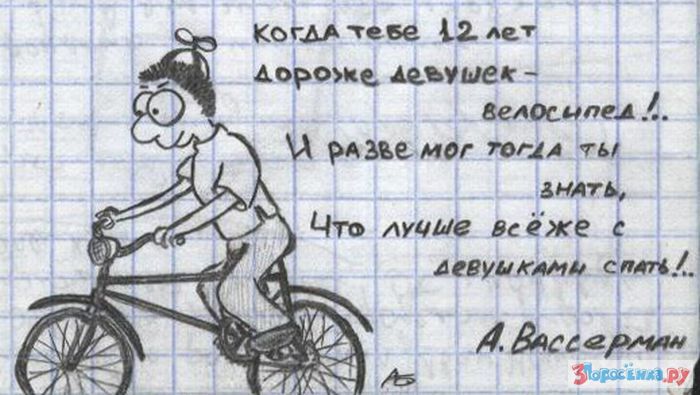 когда тебе 12 лет
дороже девушек -
велосипед!..
И разве мог тогда ты
знать,
Что лучше всёже с
девушками спать!..
А. Вассерман
АБ
3Поросёнка.ру